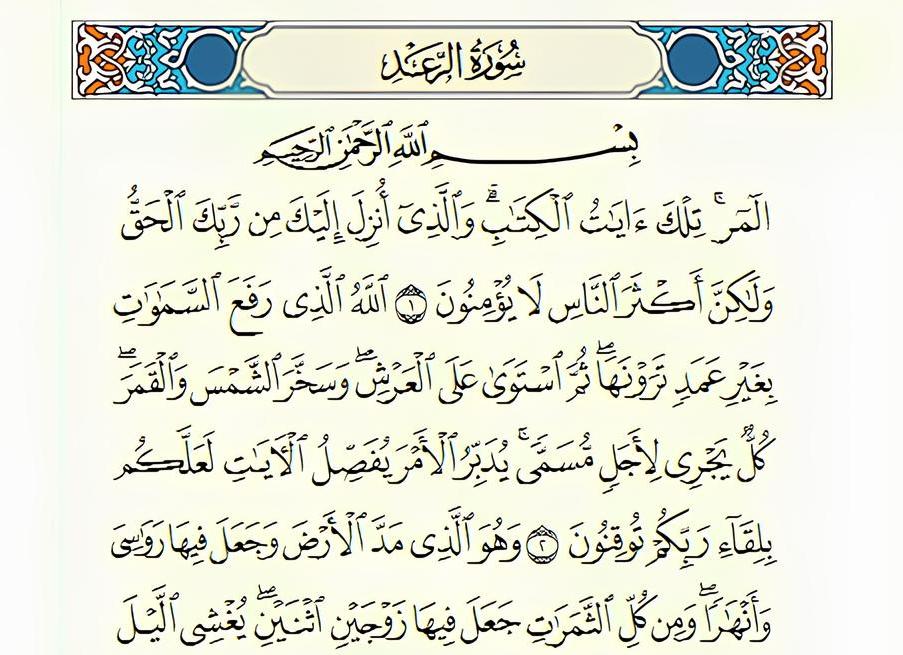 سُورَةُ الرَّعْدِ
بِسْمِ ٱللَّهِ ٱلرَّحْمَٰنِ ٱلرَّحِيمِ
الٓمٓرۚ تِلْكَ ءَايَٰتُ ٱلْكِتَٰبِۗ وَٱلَّذِىٓ أُنزِلَ إِلَيْكَ مِن رَّبِّكَ ٱلْحَقُّ
وَلَٰكِنَّ أَكْثَرَ ٱلنَّاسِ لَا يُؤْمِنُونَ ١ ٱللَّهُ ٱلَّذِى رَفَعَ ٱلسَّمَٰوَٰتِ
بِغَيْرِ عَمَدٍ تَرَوْنَهَاۖ ثُمَّ ٱسْتَوَىٰ عَلَى ٱلْعَرْشِۖ وَسَخَّرَ ٱلشَّمْسَ وَٱلْقَمَرَۖ
كُلٌّ يَجْرِى لِأَجَلٍ مُّسَمًّىۚ يُدَبِّرُ ٱلْأَمْرَ يُفَصِّلُ ٱلْءَايَٰتِ لَعَلَّكُم
بِلِقَآءِ رَبِّكُمْ تُوقِنُونَ ٢ وَهُوَ ٱلَّذِى مَدَّ ٱلْأَرْضَ وَجَعَلَ فِيهَا رَوَٰسِىَ
وَأَنْهَٰرًاۖ وَمِن كُلِّ ٱلثَّمَرَٰتِ جَعَلَ فِيهَا زَوْجَيْنِ ٱثْنَيْنِۖ يُغْشِى ٱلَّيْلَ